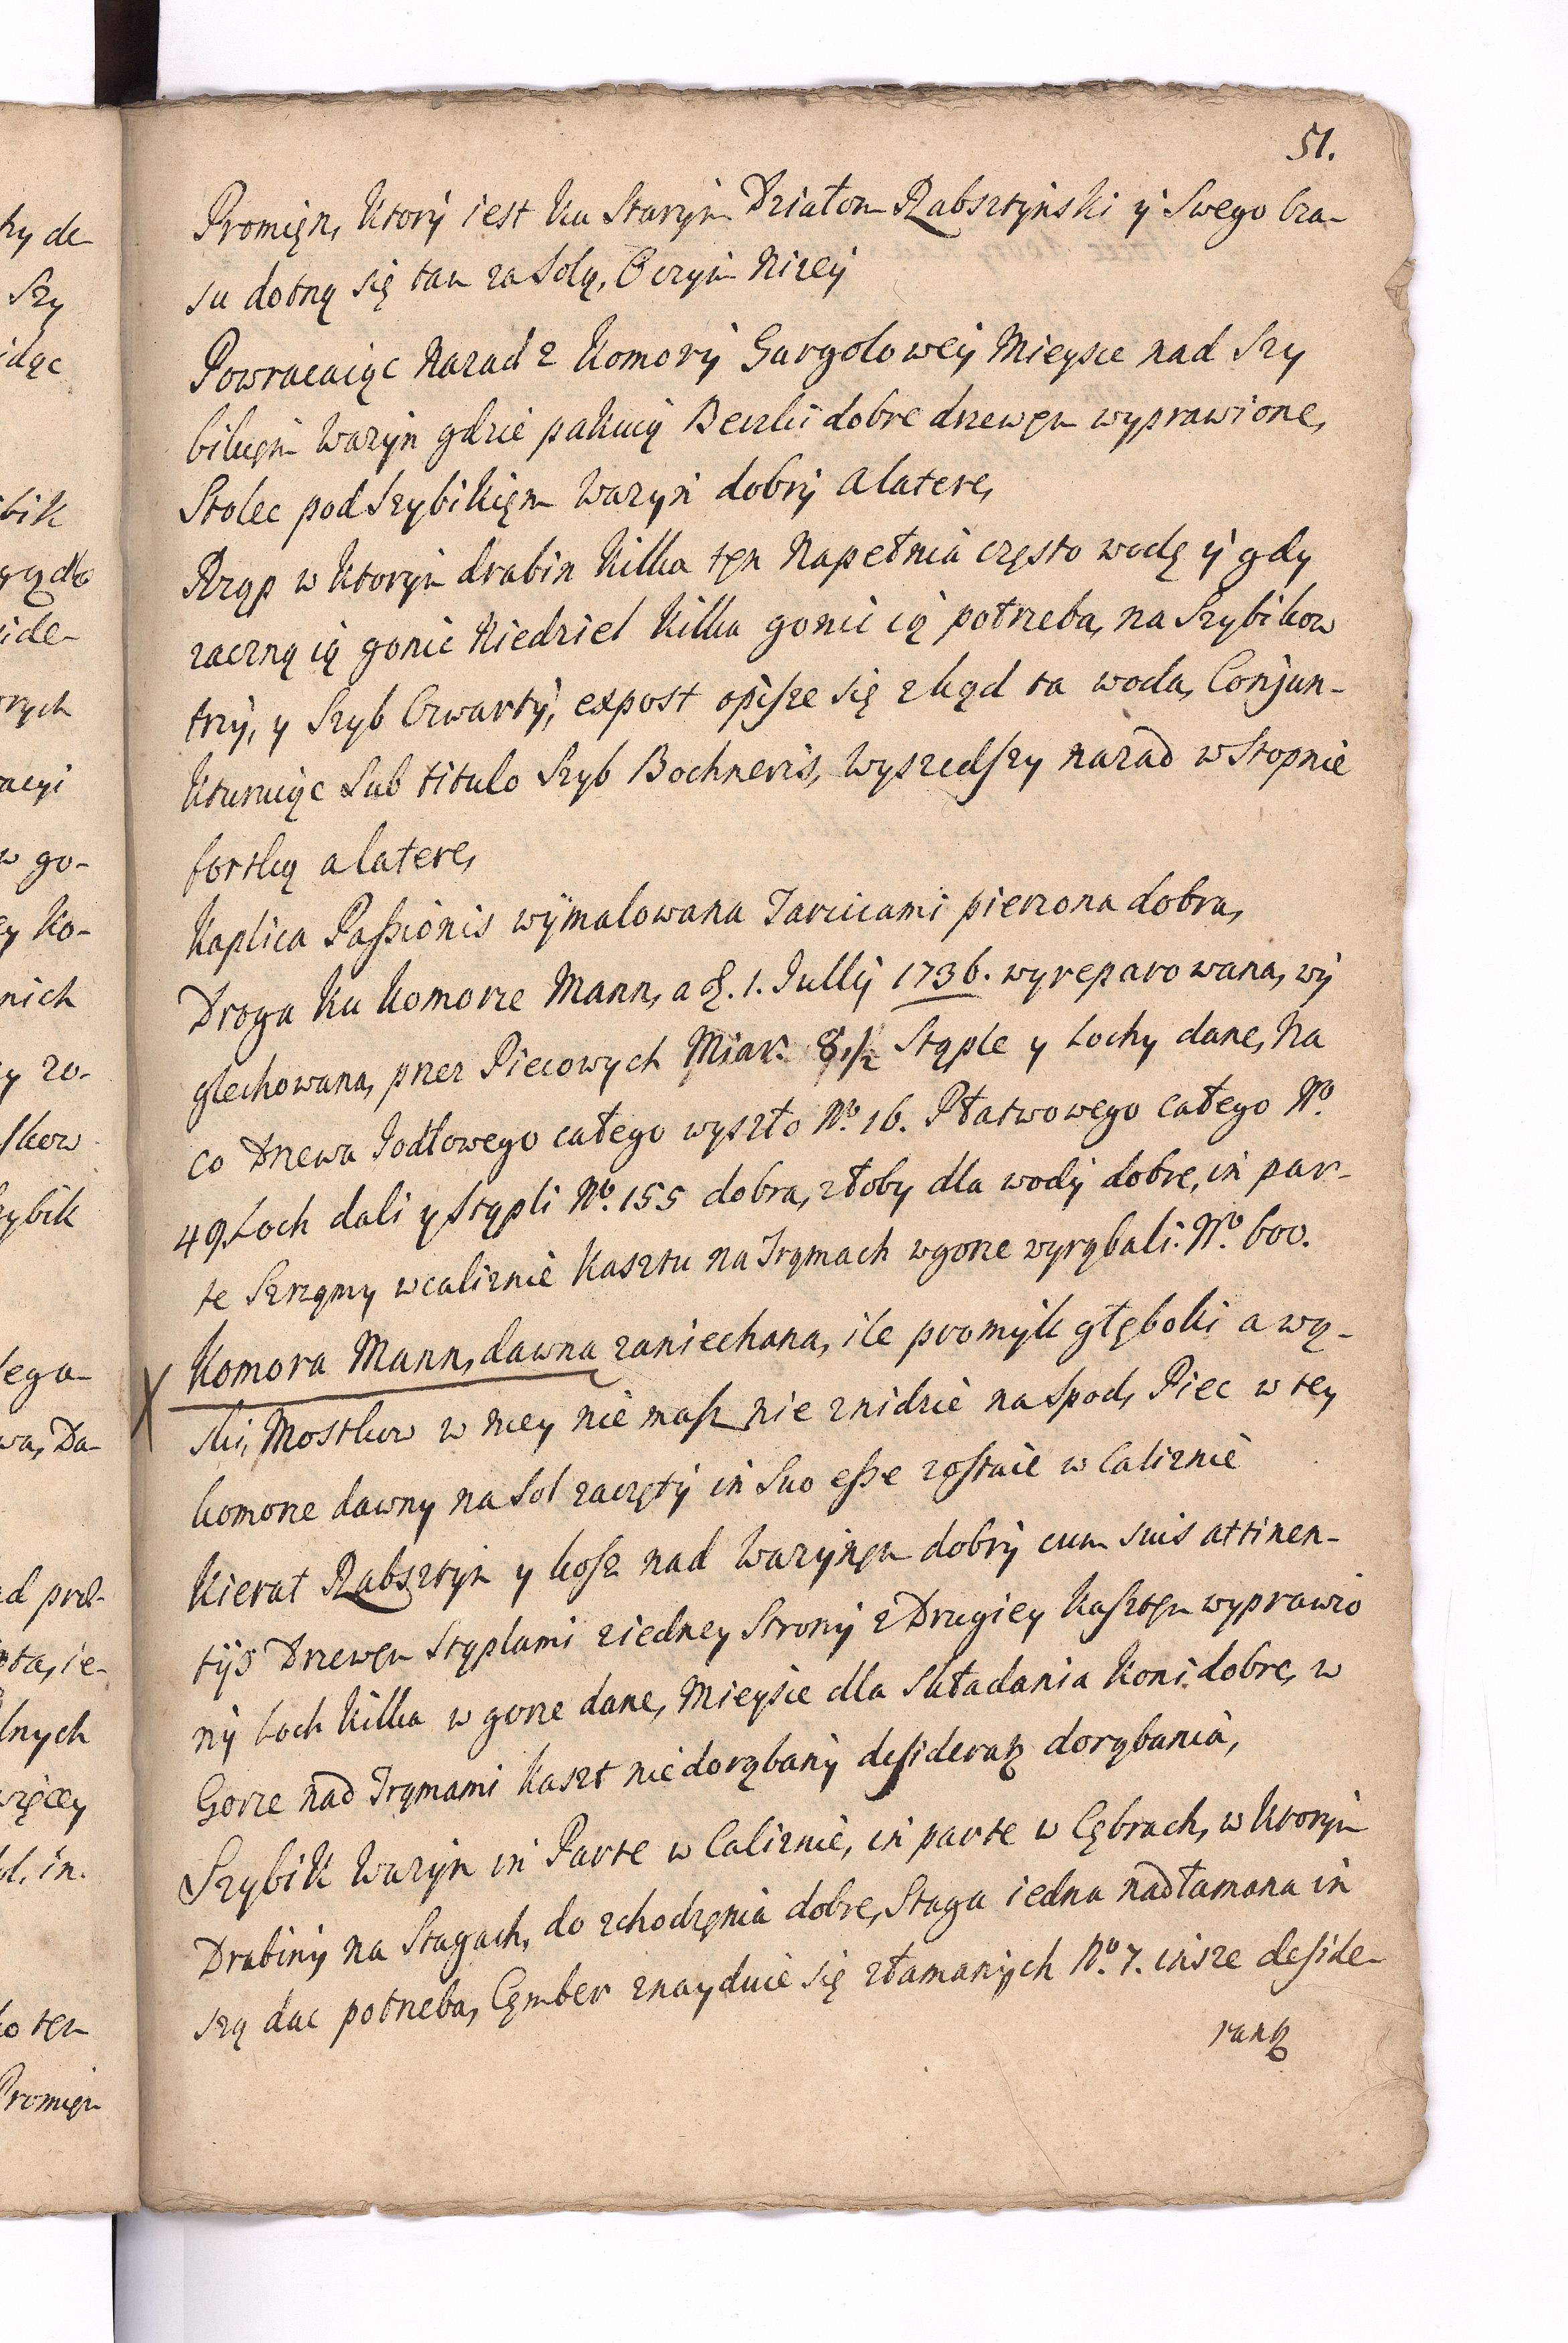 51.
Promięn, Ktory iest Ku Starym Działom Rabsztynski y Swego Cza-
su dotną się tam za Solą, O czym Nizey
Powracaiąc Nazad z Komory Gargolowey Mieysce nad Szy
bikięm Wazyn gdzie pakuią Beczki dobre drzewęm wyprawione,
Stolec pod Szybikięm Wazyn dobry a latere,
Rząp w Ktorym drabin Kilka tęn Napełnia często wodę y gdy
zaczną ią gonic Niedziel Kilka gonic ią potrzeba, na Szybikow
trzy, y Szyb Czwarty, expost opisze się zkąd ta woda, Conjun-
kturuiąc Sub titulo Szyb Bochneris, Wyszedszy nazad w Stopnie
fortką a latere,
Kaplica Passionis wymalowana Tarcicami pierzona dobra,
Droga Ku Komorze Mann, a d. 1. Jullij 1736. wyreparowana, wy
glechowana, przez Piecowych Miar: 8 1/2 Stęple y Lochy dane, Na
co Drzewa Jodłowego całego wyszło No. 16. Płatwowego całego No.
49. Loch dali y Stępli No. 155 dobra, złoby dla wody dobre, in par-
te Strzęmy w caliznie Kasztu na Tręmach w gorze wyrąbali: No. 600.
Komora Mann, dawna zaniechana, ile promyk głęboki a wą-
ski, Mostkow w niey nie masz nie znidzie na spod, Piec w tey
komorze dawny na Sol zaczęty in Suo esse zostaie w Caliznie
Kierat Rabsztyn y kosz nad Wazynęm dobry cum suis attinen-
tijs Drzewęm Stęplami z iedney Strony z Drugiey Kasztęm wyprawio
ny Loch Kilka w gorze dane, Mieysce dla Składania Koni dobre, w
Gorze nad Tręmami Kaszt nie dorąbany desiderat dorąbania,
Szybik Wazyn in Parte w Caliznie, in parte w Cębrach, w Ktorym
Drabiny na Stagach, do zchodzęnia dobre, Staga iedna nadłamana in
szą dac potrzeba, Cęmber znayduie się złamanych No. 7. insze deside-
rant